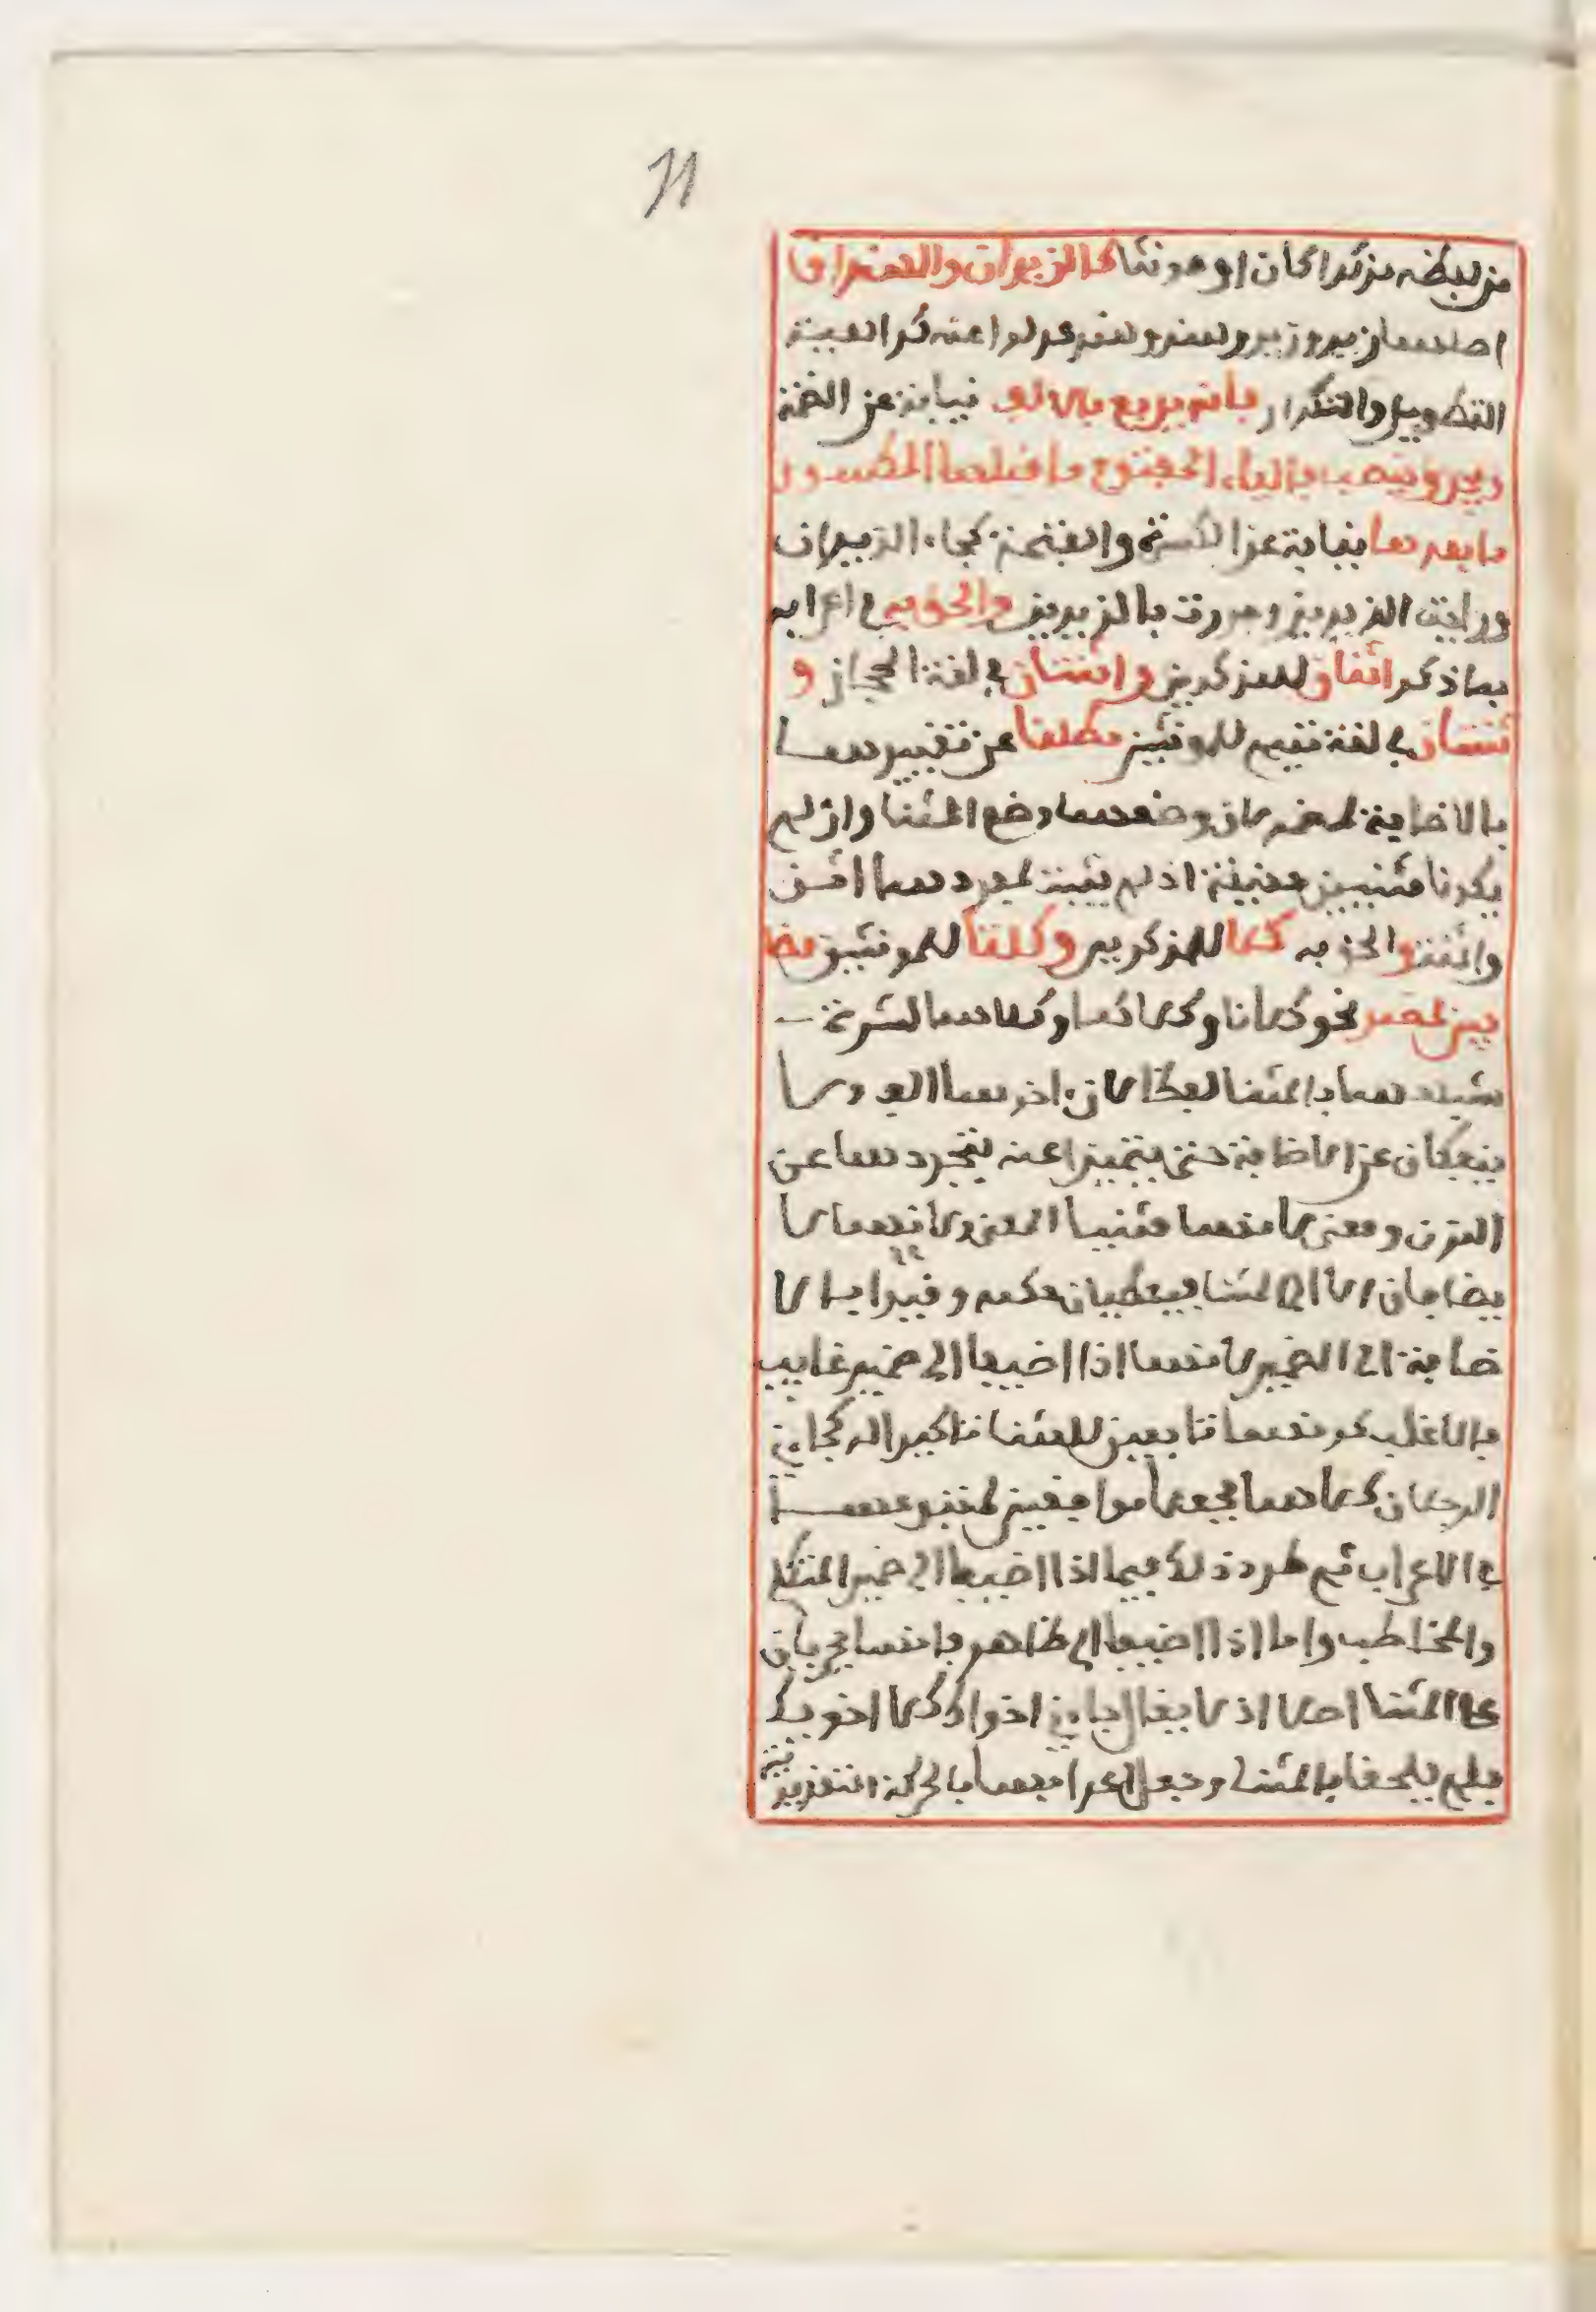 71
من لفظه مذكرا كان او مونثا كالزيدان والهندان
اصلهما زيد وزيد وهند وهند عدلوا عنه كراهية
التطويل والتكرار فانه يرفع بالالف نيابة عن الضمة
ويجر وينصب بالياء المفتوح ما قبلها المكسور
ما بعدها نيابة عن الكسرة والفتحة كجاء الزيدان
ورايت الزيدين ومررت بالزيدين والحق به في اعرابه
بما ذكر اثنان للمذكرين واثنتان في لغة الحجاز و
ثنتان في لغة تميم للمونثين مطلقا عن تقييدهما
بالاضافة لمضمر لان وضعهما وضع المثنا وان لم
يكونا مثنيين حقيقة اذ لم يثبت لمفردهما اثن
واثنت والحق به كلا للمذكرين وكلتا للمونثين مضا
فين لمضمر نحو كلانا وكلاكما وكلاهما لشدة
شبههما بالمثنا لفظا لان اخرهما الف ولا
ينفكان عن الاضافة حتى يتميزا عنه بتجردهما عن
النون ومعنى لانهما مثنيا المعنى ولانهما لا
يضافان الا الى المثنا فيعطيان حكمه وقيدا بالا
ضافة الى الضمير لانهما اذا اضيفا الى ضمير غايب
فالاغلب كونهما تابعين للمثنا تاكيدا له كجاءني
الرجلان كلاهما فجعلا موافقين لمتبوعهما
في الاعراب ثم طرد ذلك فيما اذا اضيفا الى ضمير المتكلم
والمخاطب واما اذا اضيفا الى ظاهر فانهما لا يجريان
على المثنا اصلا اذ لا يقال جاءني اخواك كلا اخويك
فلم يلحقا بالمثنا وجعل اعرابهما بالحركة التقديرية